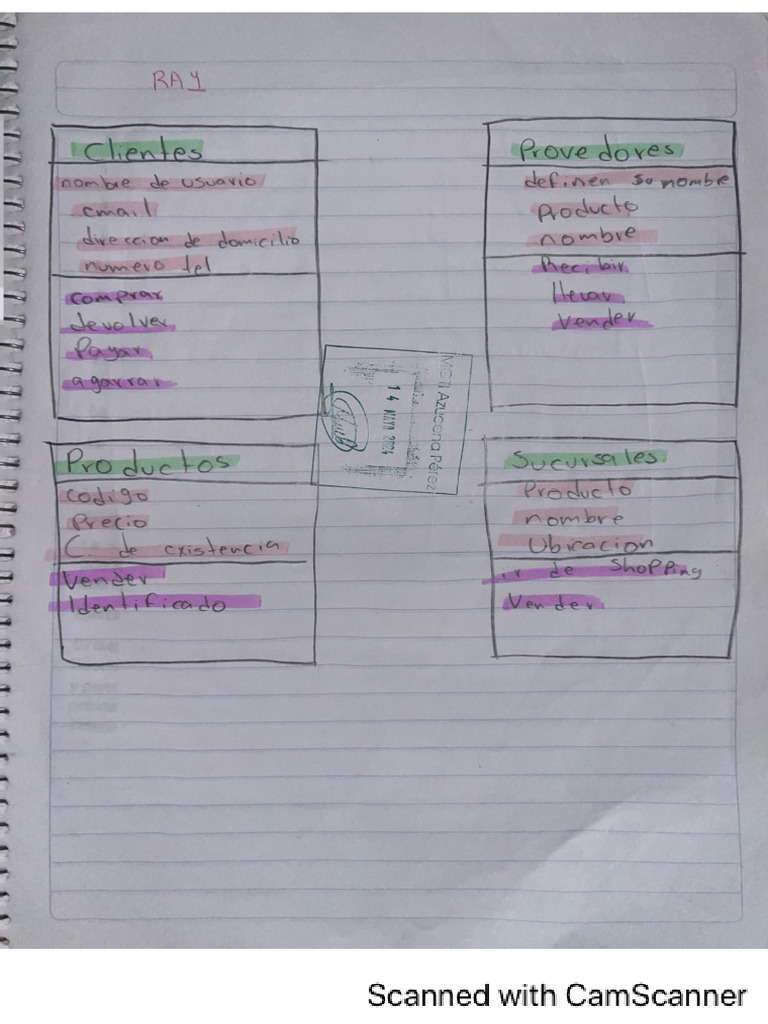 RA1
Clientes
nombre de usuario
email
direccion de domicilio
numero tel
comprar
devolver
Pagar
agarrar
Provedores
definen su nombre
Producto
nombre
Recibir
llevar
vender
Azucena Pérez
14 MAY
Productos
Codigo
Precio
C. de existencia
Vender
Identificado
Sucursales
Producto
nombre
Ubicacion
ir de Shopping
Vender
Scanned with CamScanner